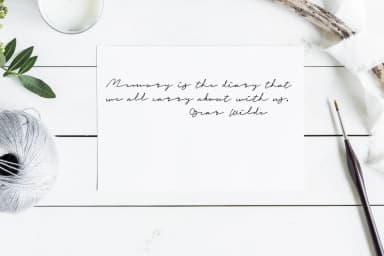 Memory is the diary that
we all carry about with us.
Oscar Wilde